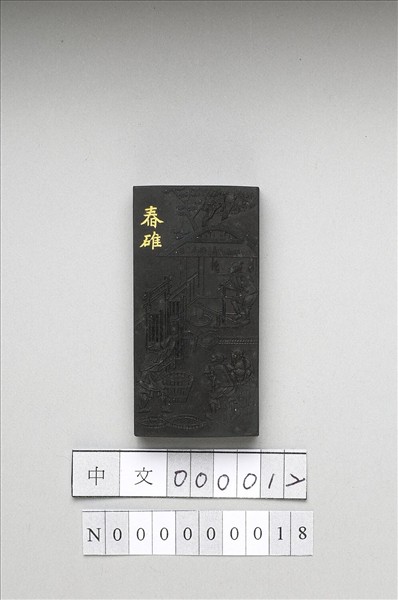 舂碓
中文000012
N000000018